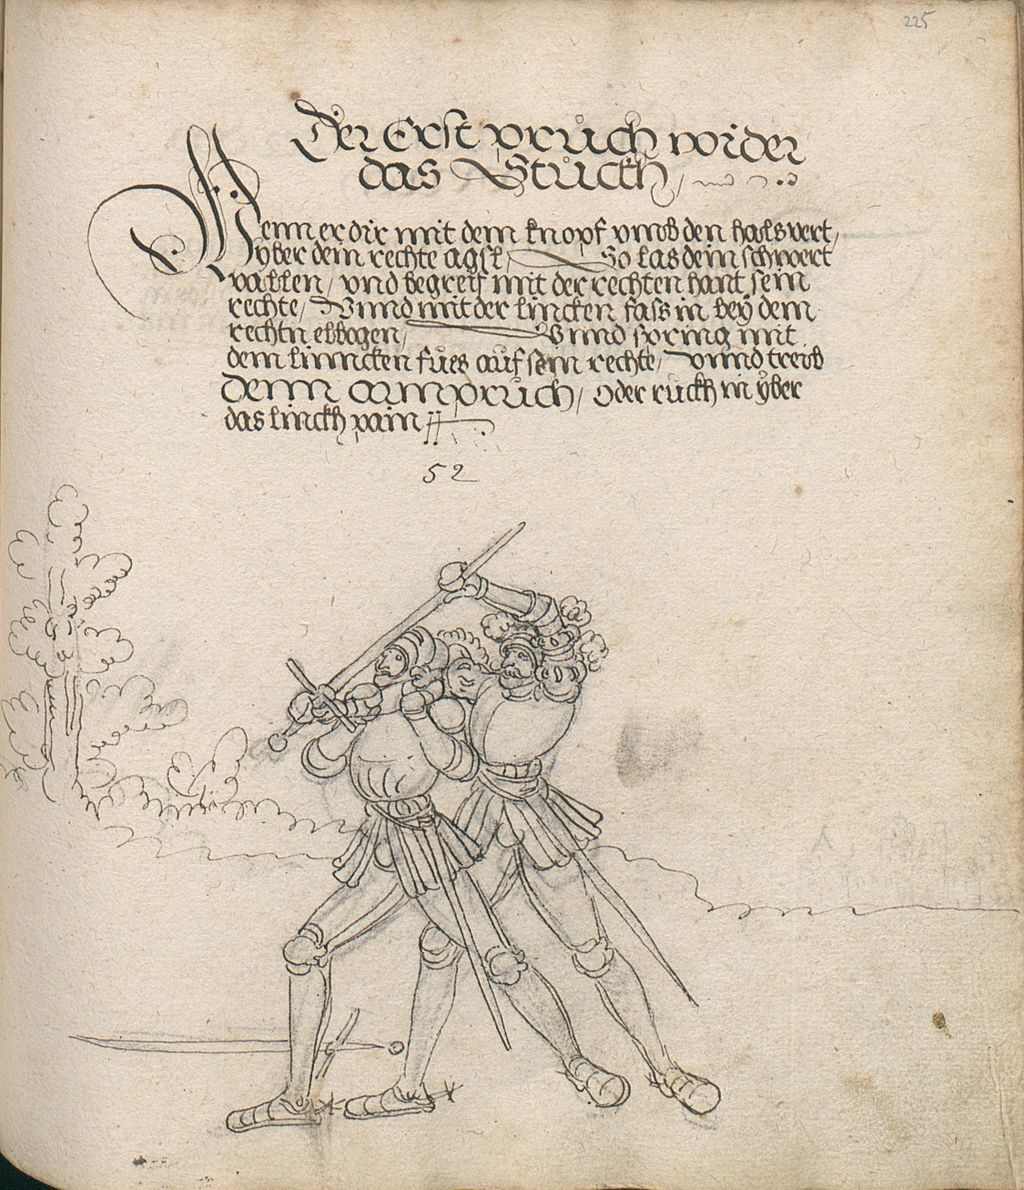 225
Der Erst pruch wider
das Stuckh /
Wenn er dir mit dem knopf vmb den hals vert /
yber dein rechte agsl / So las dein schwert
vallen / vnd begreif mit der rechten hant sein
rechte / Vnnd mit der lincken fass in bey dem
rechtn elbogen / Vnnd spring mit
dem linncken fues auf sein rechte / vnnd treib
denn armpruch / oder ruckh in yber
das linckh pain //
52